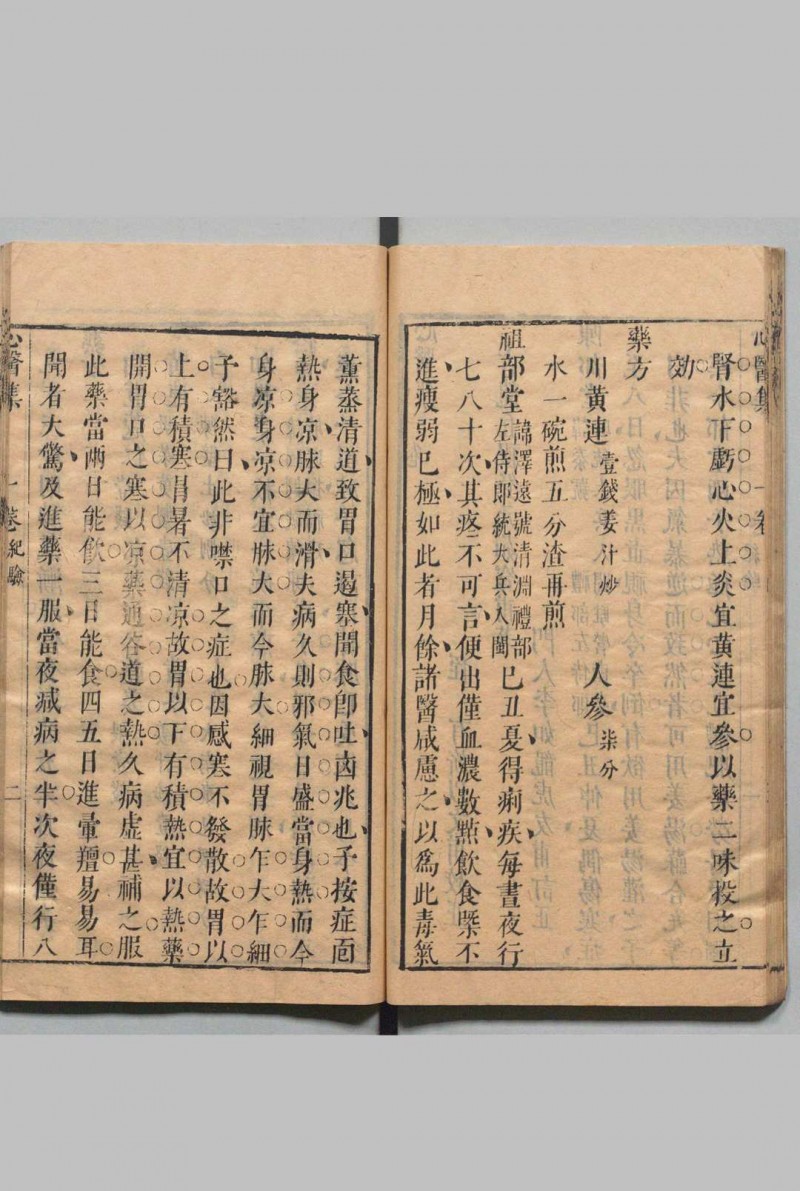 心醫集 一卷
腎水下虧心火上炎宜黃連宜參以藥二味投之立
効
藥方
川黃連壹錢姜汁炒 人參柒分
水一碗煎五分渣再煎
祖部堂諱澤遠號清淵禮部左侍郎統大兵入閩巳丑夏得痢疾每晝夜行
七八十次其疼不可言便出僅血濃數點飲食槩不
進瘦弱巳極如此者月餘諸醫咸慮之以爲此毒氣
薰蒸清道致胃口遏寒聞食卽吐凶兆也予按症面
熱身凉脉大而滑夫病久則邪氣日盛當身熱而今
身凉身凉不宜脉大而今脉大細視胃脉乍大乍細
予豁然曰此非噤口之症也因感寒不發散故胃以
上有積寒冒暑不清凉故胃以下有積熱宜以熱藥
開胃口之寒以凉藥通谷道之熱久病虛甚補之服
此藥當兩日能飲三日能食四五日進葷羶易易耳
聞者大驚及進藥一服當夜减病之半次夜僅行八
心醫集 一卷 紀驗 二